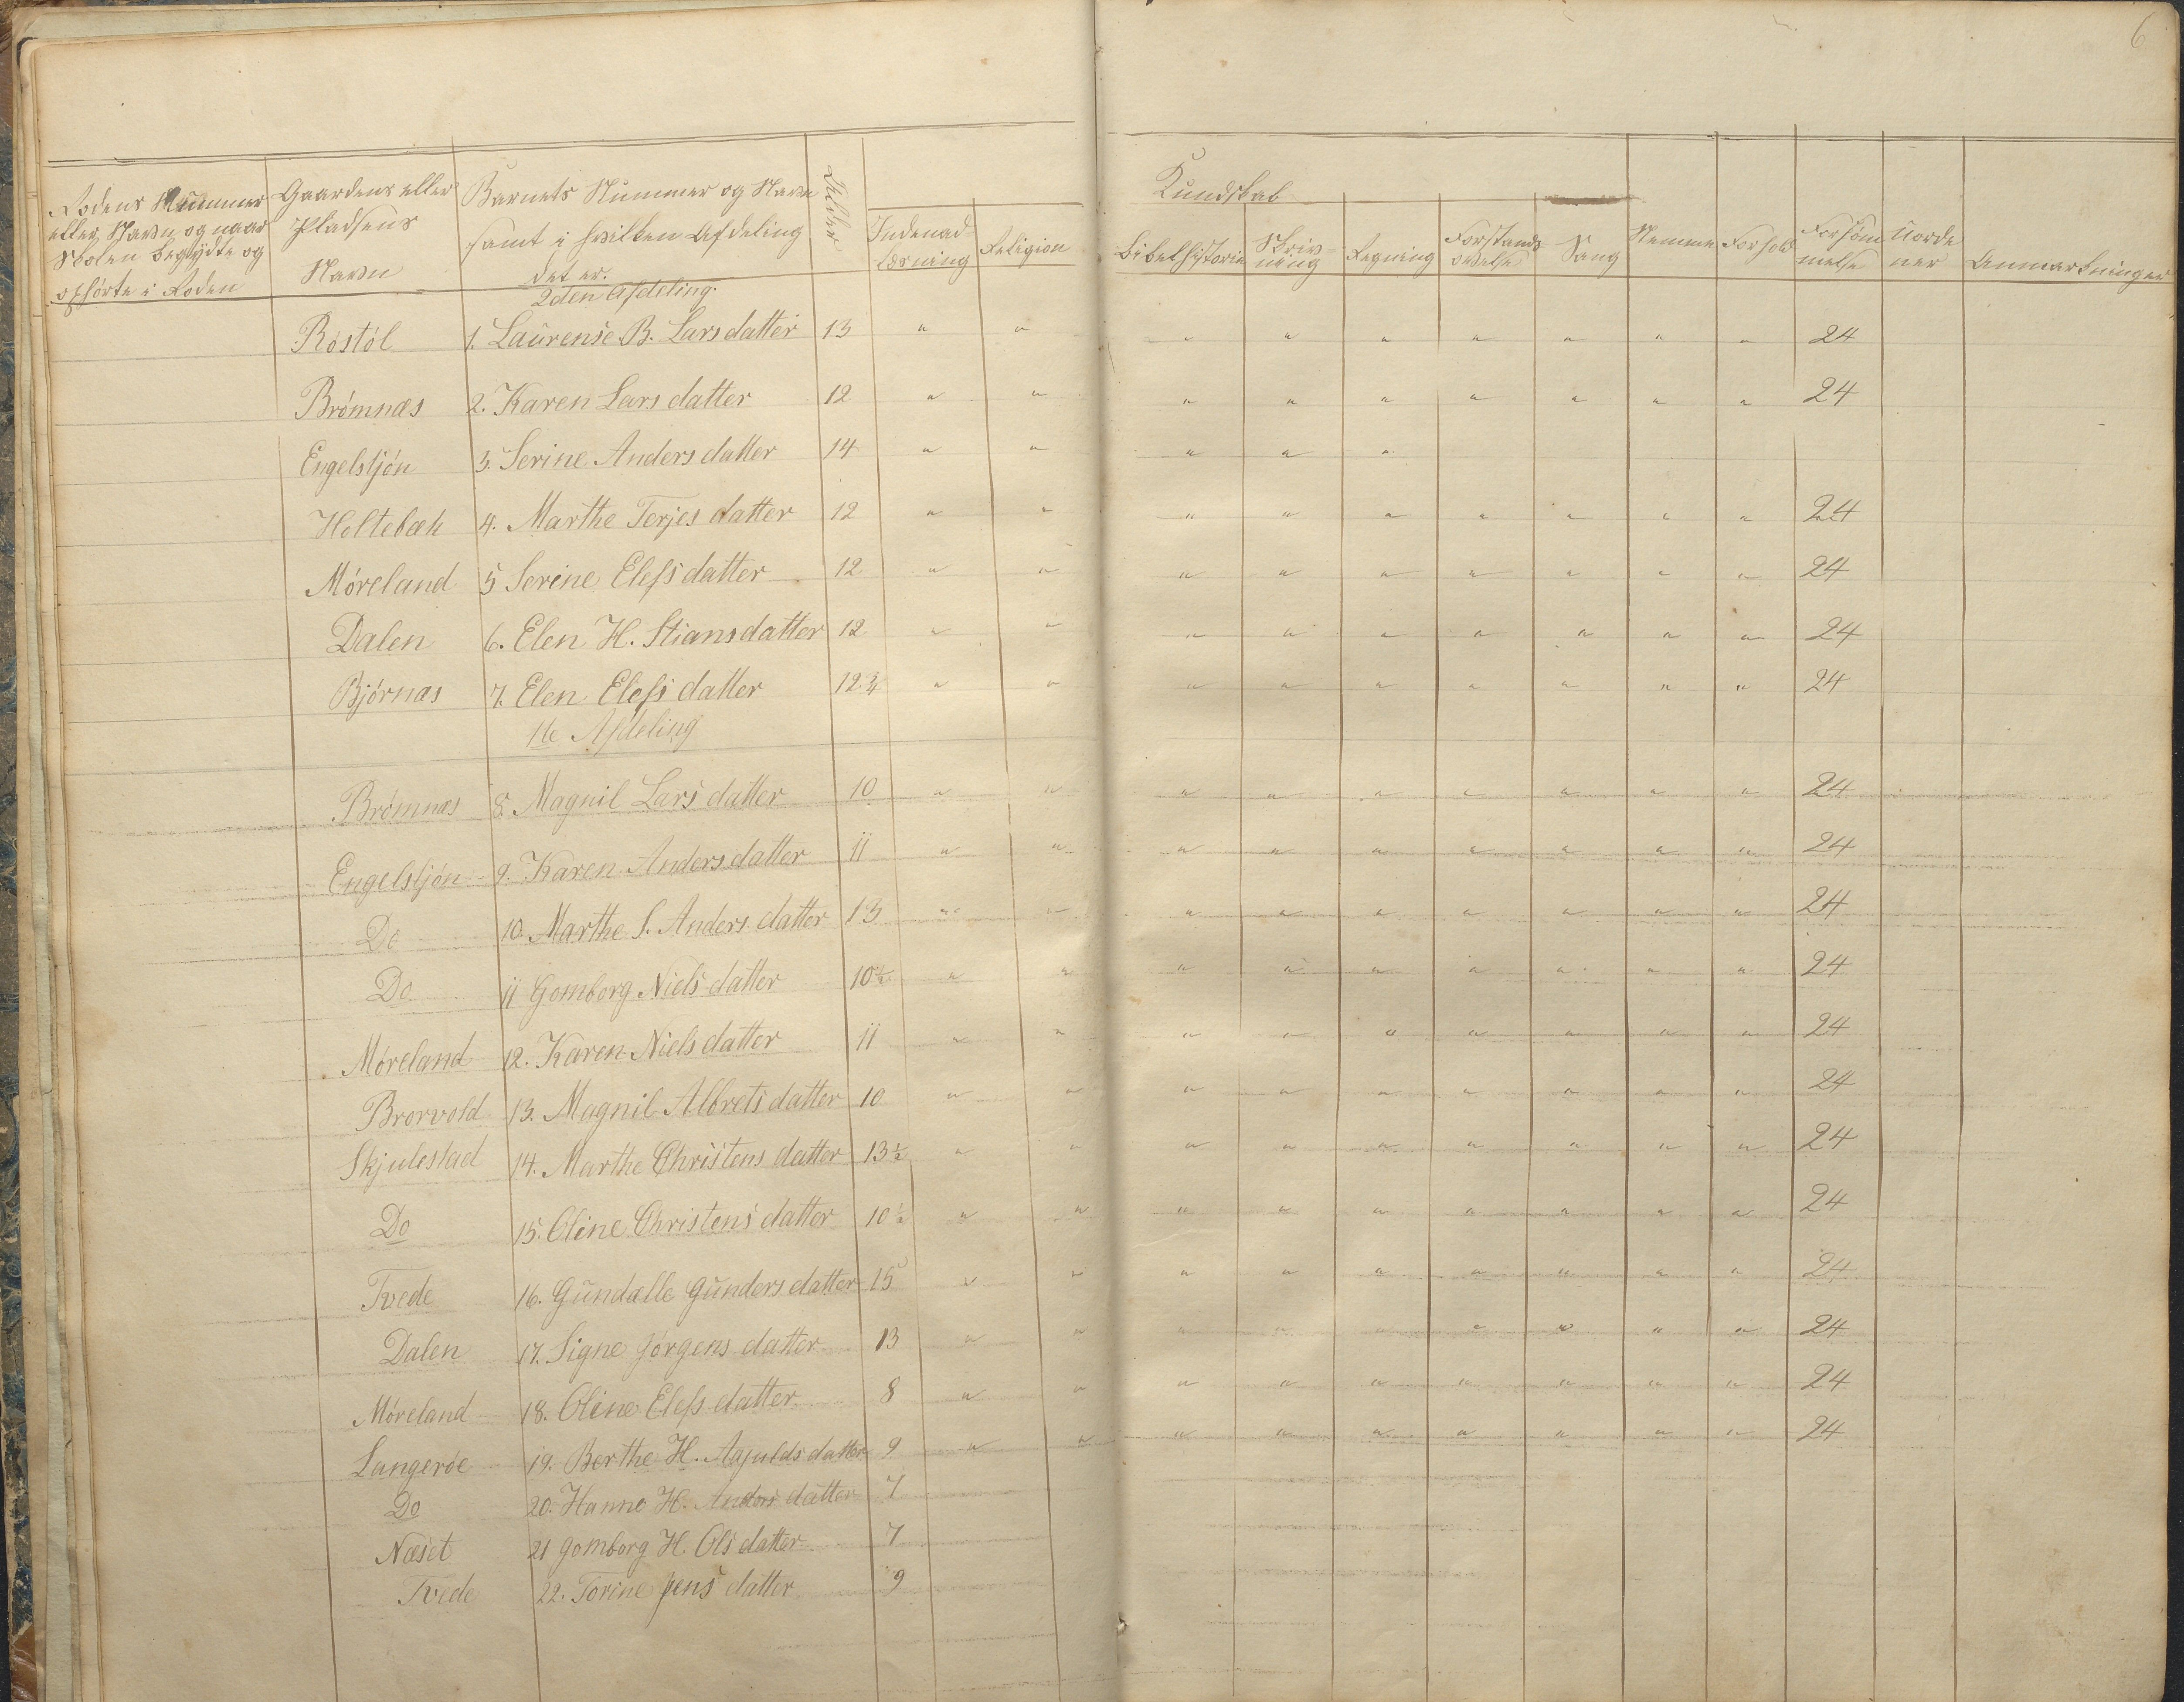 6
Rodens Nummer
eller Navn og naar
Skolen begyndte og
ophørte i Roden
Gaardens eller
Pladsens
Navn
Barnets Nummer og Navn
samt i hvilken Afdeling
det er.
Alder
Indenad-
læsning
Religion
Kundskab
Bibelhistorie
Skriv-
ning
Regning
Forstands
øvelse
Sang
Nemme
Forhold
Forsøm
melse
Uorde
ner
Anmærkninger
2den Afdeling.
Röstöl 1. Laurense B. Lars datter 13 " " " " " " " " " 24
Brömnæs 2. Karen Lars datter 12 " " " " " " " " " 24
Engelstjön 3. Serine Anders datter 14 " " " " "
Holtebæk 4. Marthe Terjes datter 12 " " " " " " " " " 24
Möreland 5 Serine Elefs datter 12 " " " " " " " " " 24
Dalen 6. Elen H. Stians datter 12 " " " " " " " " " 24
Björnæs 7. Elen Elefs datter 12 3/4 " " " " " " " " " 24
1te Afdeling
Brömnæs 8. Magnil Lars datter 10 " " " " " " " " " 24
Engelstjön 9. Karen Anders datter 11 " " " " " " " " " 24
Do 10. Marthe S. Anders datter 13 " " " " " " " " " 24
Do 11 Gomborg Niels datter 10 1/2 " " " " " " " " " 24
Möreland 12. Karen Niels datter 11 " " " " " " " " " 24
Brorvold 13. Magnil Albrets datter 10 " " " " " " " " " 24
Skjulestad 14. Marthe Christens datter 13 1/2 " " " " " " " " " 24
Do 15. Oline Christens datter 10 1/2 " " " " " " " " " 24
Tvede 16. Gündalle Günders datter 15 " " " " " " " " " 24
Dalen 17. Signe Jörgens datter 13 " " " " " " " " " 24
Möreland 18. Oline Elefs datter 8 " " " " " " " " " 24
Langeröe 19. Berthe H. datter 9 " " " " " " " " " 24
Do 20. Hanne H. Anders datter 7
Næset 21 Gomborg H. Ols datter 7
Tvede 22. Torine Jens datter 9